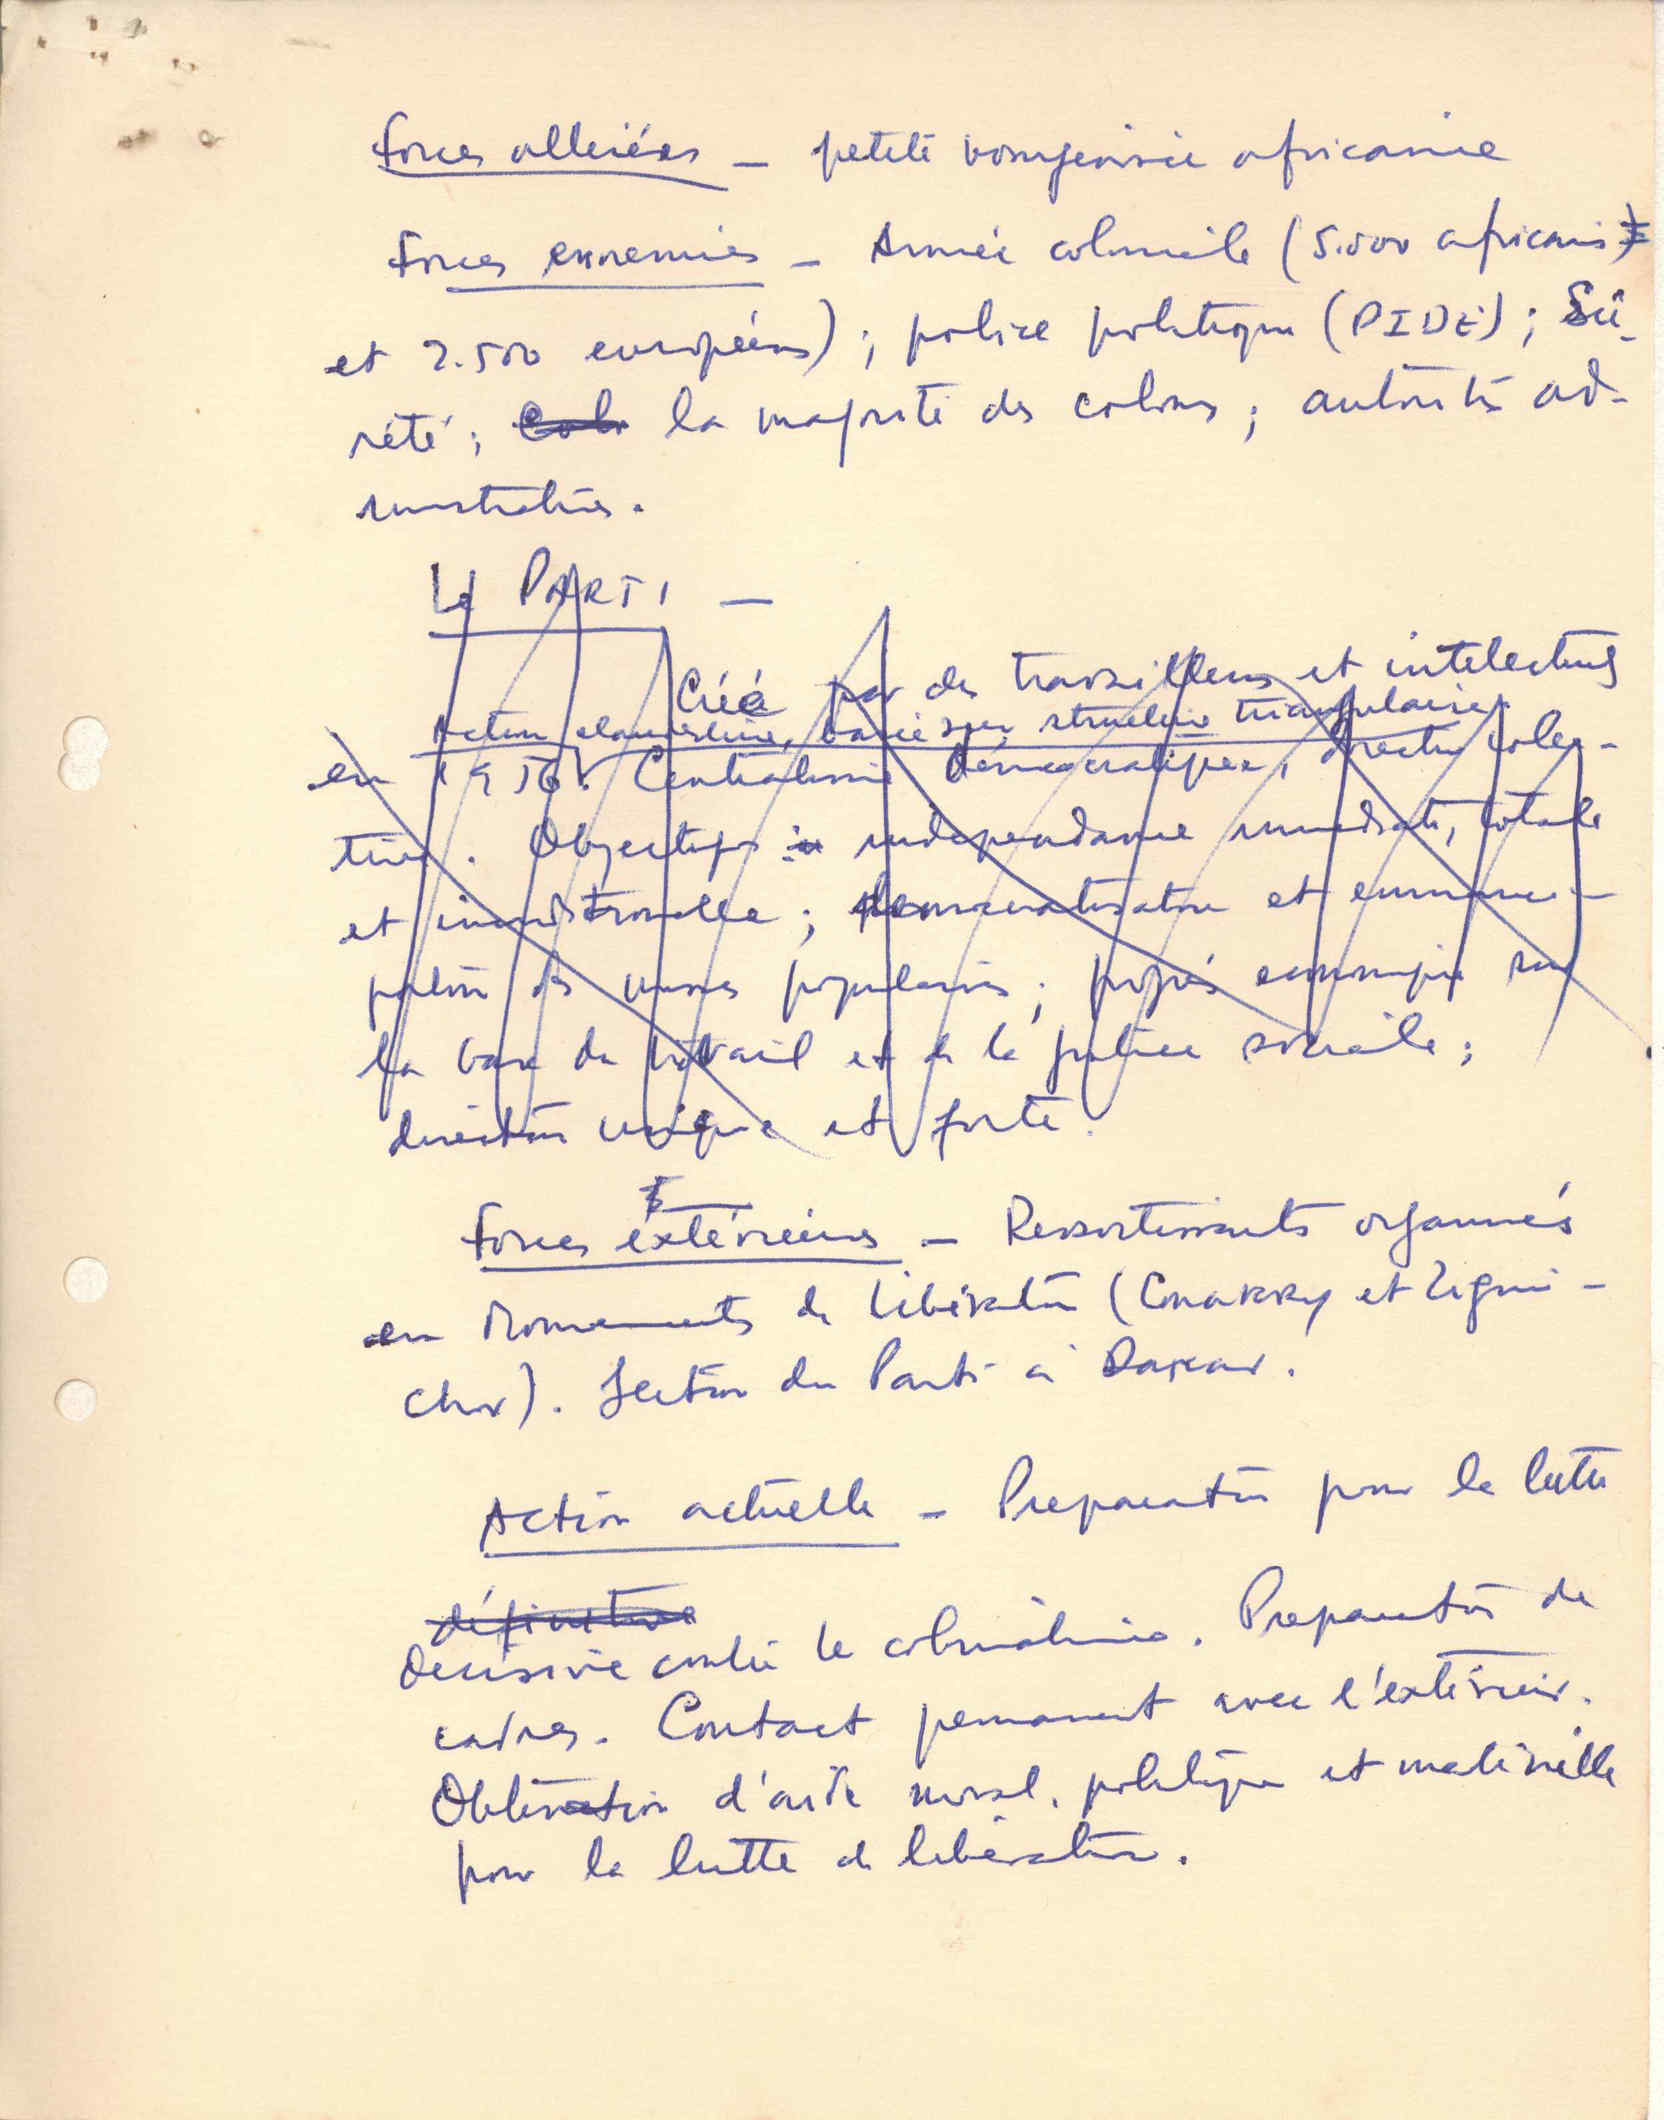 Forces alliées — petite bourgeoisie africaine
Forces ennemies — Armée coloniale (5.000 africains)
et 2.500 européens) ; police politique (PIDE) ; Sû-
reté ; Colo la majorité des colons ; autorités ad-
ministratives.
Le PARTI —
Créé par des travailleurs et intelectuels
Action clandestine, basée sur structure triangulaire
en 1956. Centralisme démocratique, direction colec-
tive. Objectifs : independance immediate, totale
et inconditionelle ; democratisation et emanci-
pation des masses populaires ; progrès economique sur
la base du travail et de la justice sociale ;
direction unique et forte.
Forces éxtérieures — Ressortissants organisés
en Mouvements de Libération (Conakry et Zigui-
chor). Section du Parti à Dakar.
Action actuelle — Preparation pour la lutte
définitive
decisive contre le colonialisme. Preparation de
cadres. Contact permanent avec l'extérieur.
Obtention d'aide moral, politique et matérielle
pour la lutte de libération.